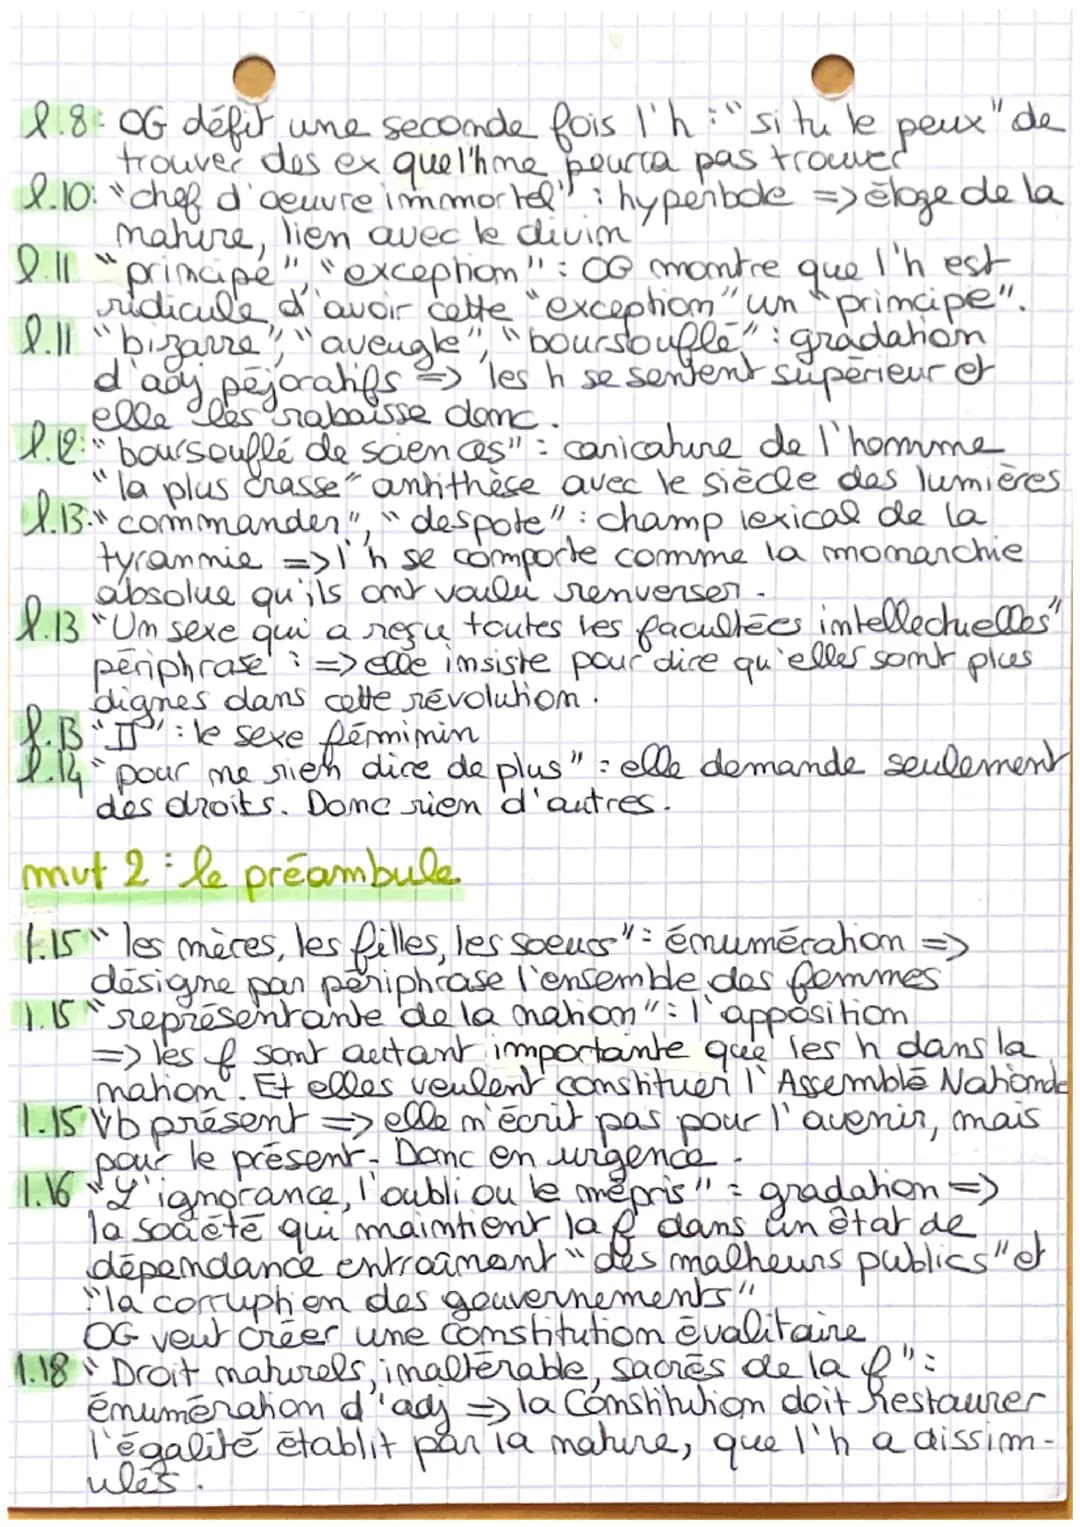 l.8: OG défit une seconde fois l'h : "si tu le peux" de
trouver des ex que l'h ne pourra pas trouver
l.10: "chef d'oeuvre immortel" : hyperbole => éloge de la
nature, lien avec le divin
l.11 "principe", "exception" : OG montre que l'h est
ridicule d'avoir cette "exception" un "principe".
l.11 "bizarre", "aveugle", "boursouflé" : gradation
d'adj péjoratifs => les h se sentent supérieur et
elle les rabaisse donc.
l.12: "boursouflé de sciences" : caricature de l'homme
"la plus crasse" antithèse avec le siècle des lumières
l.13: "commander", "despote" : champ lexical de la
tyrannie => l'h se comporte comme la monarchie
absolue qu'ils ont voulu renverser.
l.13 "Un sexe qui a reçu toutes les facultées intellectuelles"
périphrase : => elle insiste pour dire qu'elles sont plus
dignes dans cette révolution.
l.13 "Il" : le sexe féminin
l.14 "pour ne rien dire de plus" : elle demande seulement
des droits. Donc rien d'autres.
mvt 2 : le préambule.
l.15 "les mères, les filles, les soeurs" : énumération =>
désigne par périphrase l'ensemble des femmes
l.15 "représentante de la nation" : l'apposition
=> les f sont autant importante que les h dans la
nation. Et elles veulent constituer l'Assemblé Nationale
l.15 Vb présent => elle n'écrit pas pour l'avenir, mais
pour le présent. Donc en urgence.
l.16 "L'ignorance, l'oubli ou le mépris" : gradation =>
la société qui maintient la f dans un état de
dépendance entraînent "des malheurs publics" et
"la corruption des gouvernements"
OG veut créer une constitution évalitaire
l.18 "Droit naturels, inaltérable, sacrés de la f" :
énumération d'adj => la Constitution doit restaurer
l'égalité établit par la nature, que l'h a dissim-
ulés.